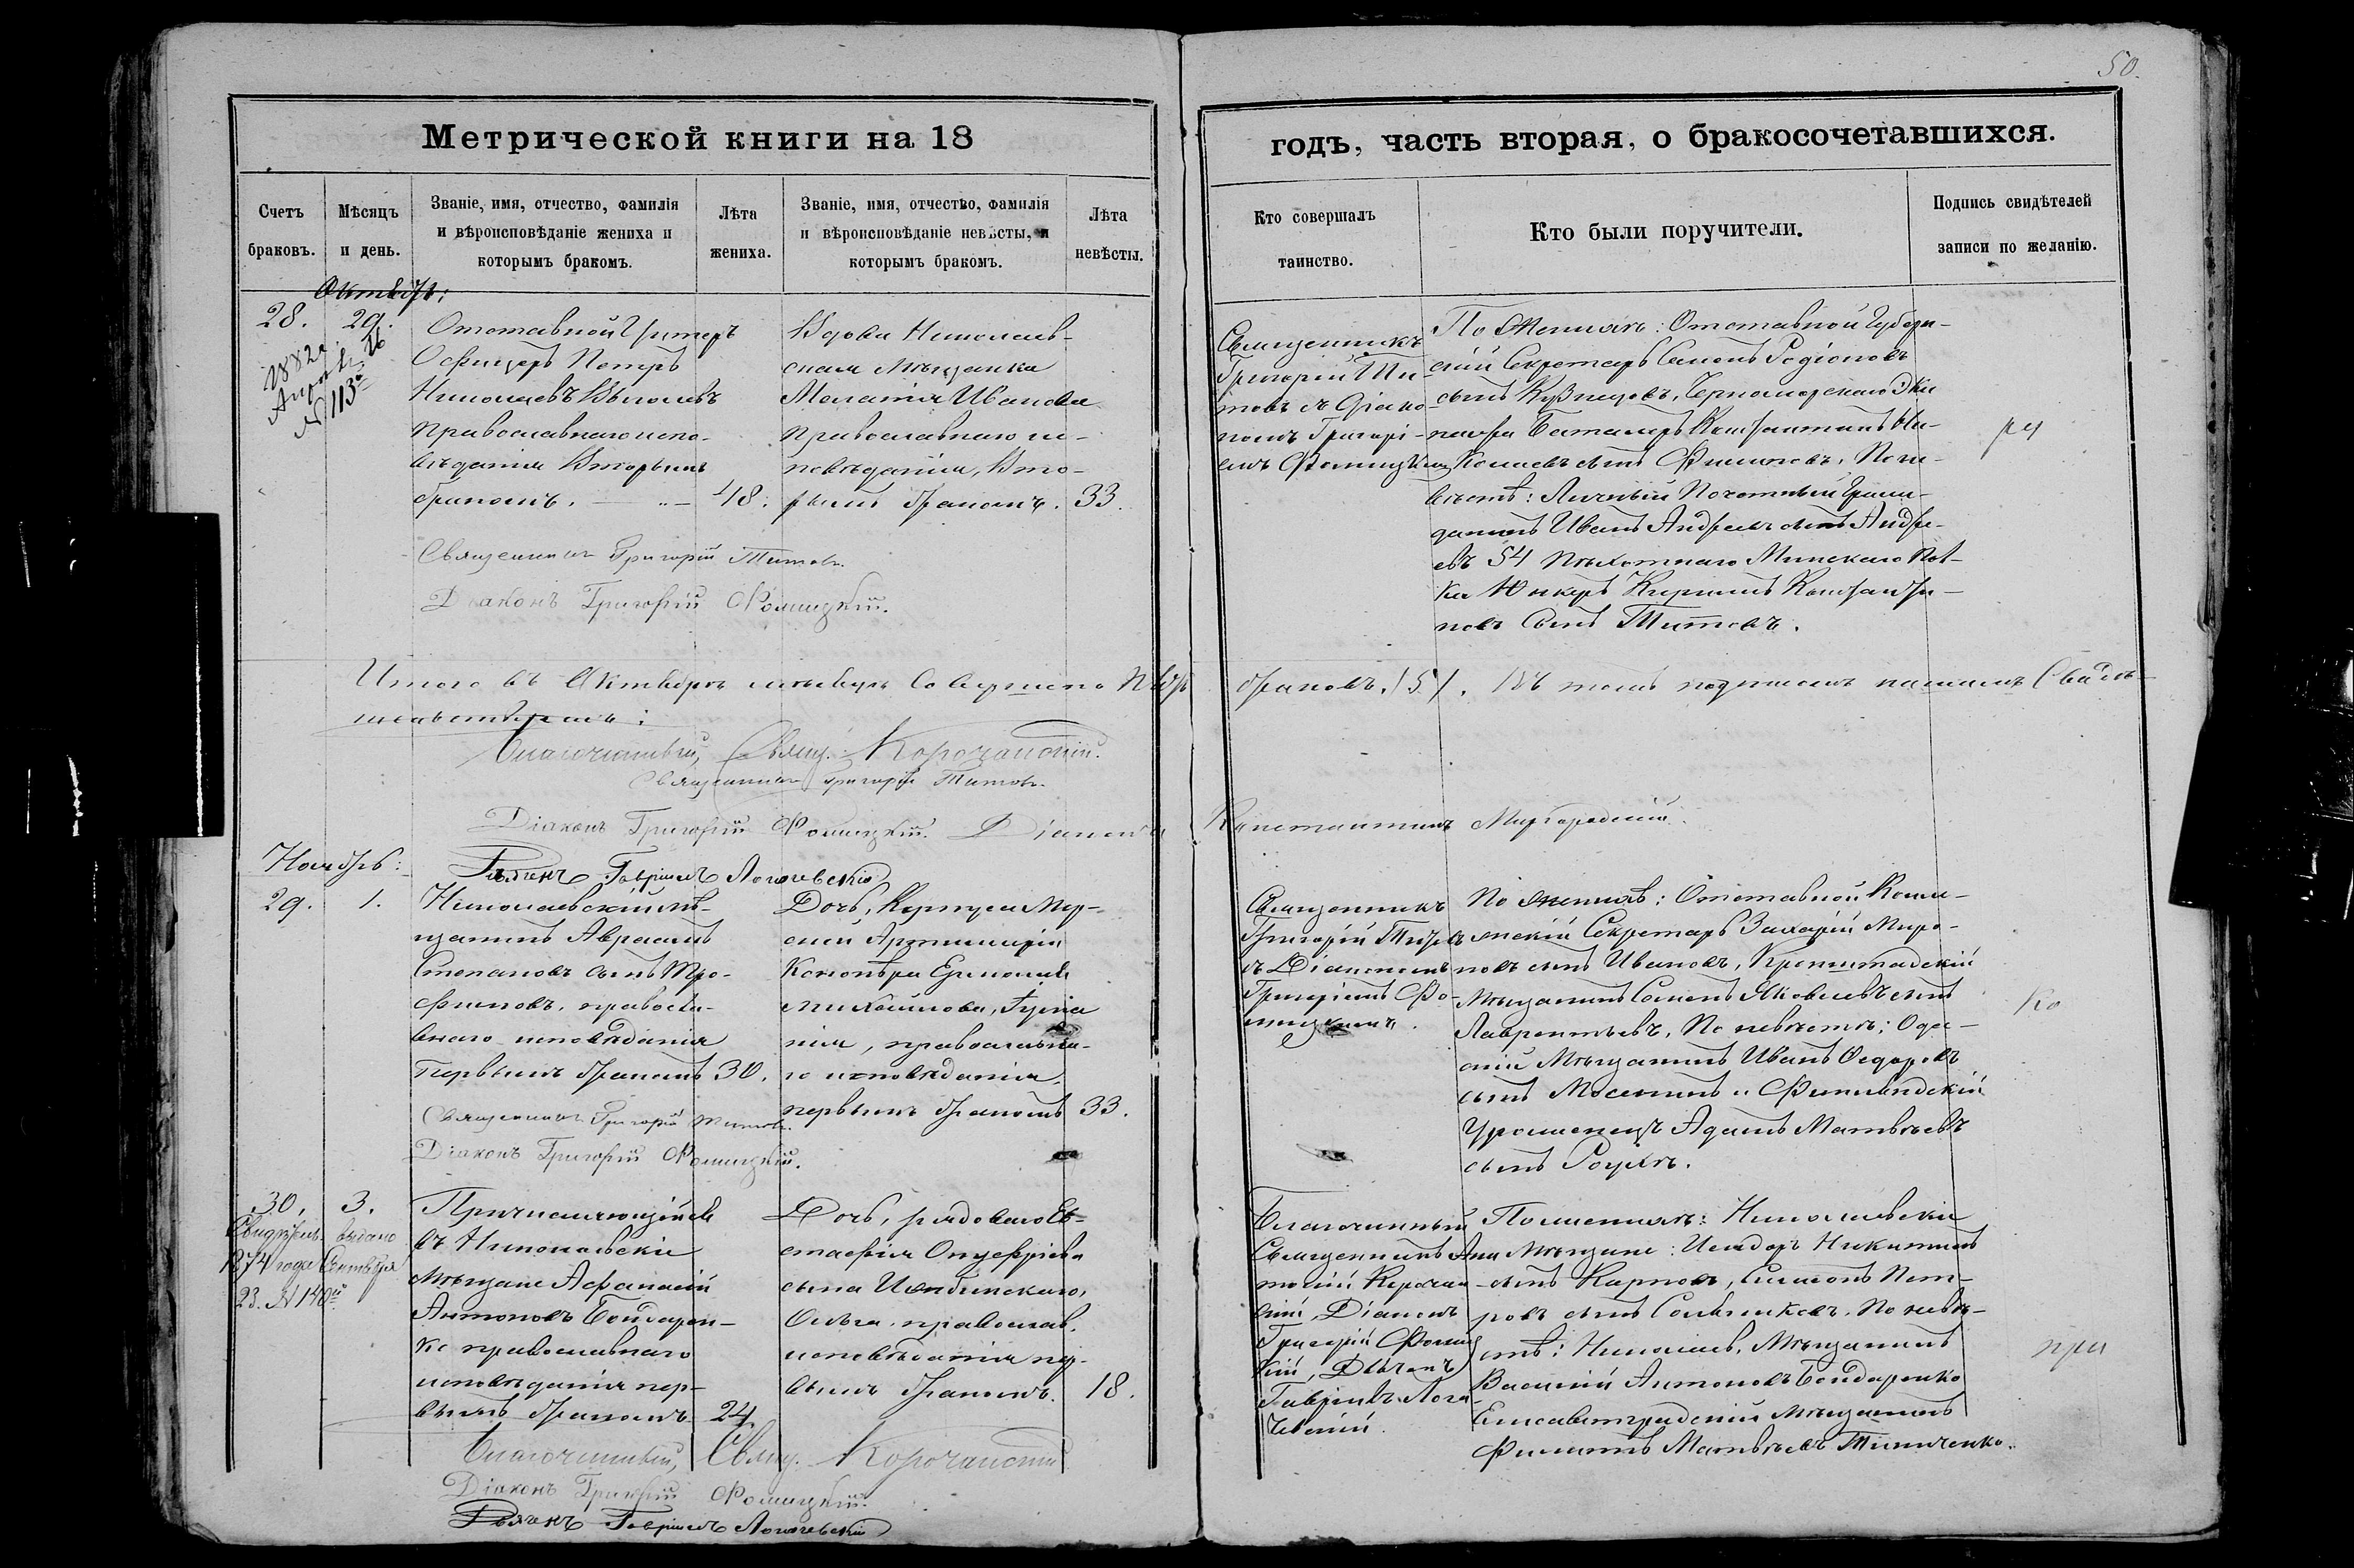 50.
Метрической книги на 18
годъ, часть вторая, о бракосочетавшихся.
Счетъ
браковъ.
Мѣсяцъ
и день.
Званіе, имя, отчество, фамилія
и вѣроисповѣданіе жениха и
которымъ бракомъ.
Лѣта
жениха.
Званіе, имя, отчество, фамилія
и вѣроисповѣданіе невѣсты, и
которымъ бракомъ.
Лѣта
невѣсты.
Кто совершалъ
таинство.
Кто были поручители.
Подпись свидѣтелей
записи по желанію.
Октябрь:
28. 29.
1882 г.
№ 113
Отставной Унтеръ
Офицеръ Петръ
Николаевъ
православнаго испо-
вѣданія вторымъ
бракомъ. 48.
Вдова Николаев-
ская Мѣщанка
Иванова
православнаго ис-
повѣданія, вто-
рымъ бракомъ. 33.
Священникъ
Григорій Ти-
товъ съ Діако-
номъ Григорі-
емъ Фомицкимъ
По женихѣ: Отставной Губерн-
скій Секретарь Семенъ Родіоновъ
сынъ Кузнецовъ, Черноморскаго Эки
пажа Баталеръ Константинъ Ни-
колаевъ сынъ Филиповъ. По не-
вѣстѣ: Личный Почетный Граж-
данинъ Иванъ Андреевъ сынъ Андре-
евъ 54 пѣхотнаго Минскаго Пол-
ка Юнкеръ Кирилъ
сынъ Титовъ.
ру
Священникъ Григорій Титовъ.
Діаконъ Григорій Фомицкій.
Итого въ Октябрѣ мѣсяцѣ совершено пять браковъ (5). Въ томъ подписомъ нашимъ Свидѣ-
тельствуемъ:
Благочинный, Свящ. Корочанскій.
Священникъ Григорій Титовъ.
Діаконъ Григорій Фомицкій. Діаконъ Константинъ Миргородскій.
Дьячекъ Гавріилъ Логачевскій
Ноябрь:
29. 1.
Николаевскій мѣ-
щанинъ Авраамъ
Степановъ сынъ Тро-
фимовъ, правосла-
внаго исповѣданія
первымъ бракомъ 30.
Дочь, Корпуса Мор-
ской Артиллеріи
Ермолая
Михайлова,
православна-
го исповѣданія,
первымъ бракомъ 33.
Священникъ
Григорій Титовъ
съ Діакономъ
Григоріемъ Фо-
мицкимъ.
По женихѣ: Отставной Колле-
жскій Секретарь Захарій Миро-
новъ сынъ Ивановъ, Кронштадскій
Мѣщанинъ Семенъ Яковлевъ сынъ
Лаврентьевъ, По невѣстѣ: Одес-
скій Мѣщанинъ Иванъ Федоровъ
сынъ Мосеинъ и Финляндскій
Уроженецъ Адамъ Матвѣевъ
сынъ
ко
Священникъ Григорій Титовъ.
Діаконъ Григорій Фомицкій.
30. 3.
Свидѣтел. выдано
1874 года Сентября
23. № 140
Причисляющійся
въ Николаевскіе
Мѣщане Афанасій
Антоновъ Бондарен-
ко православнаго
исповѣданія пер-
вымъ бракомъ 24.
Дочь, рядоваго Ев-
стафія Онуфріева
сына
Ольга, православ.
исповѣданія пер-
вымъ бракомъ. 18.
Благочинный
Священникъ Ана
толій Корочан
скій, Діаконъ
Григорій Фомиц
кій, Дьячекъ
Гавріилъ Лога
чевскій.
По женихѣ: Николаевскіе
Мѣщане: Исидоръ Никитинъ
сынъ Карповъ, Симеонъ Пет-
ровъ сынъ Сальниковъ. По невѣ-
стѣ: Николаев. Мѣщанинъ
Василій Антоновъ Бондаренко
Елисаветградскій мѣщанинъ
Филиппъ Матвѣевъ Тимченко.
при
Благочинный, Свящ. Корочанскій
Діаконъ Григорій Фомицкій.
Дьячекъ Гавріилъ Логачевскій